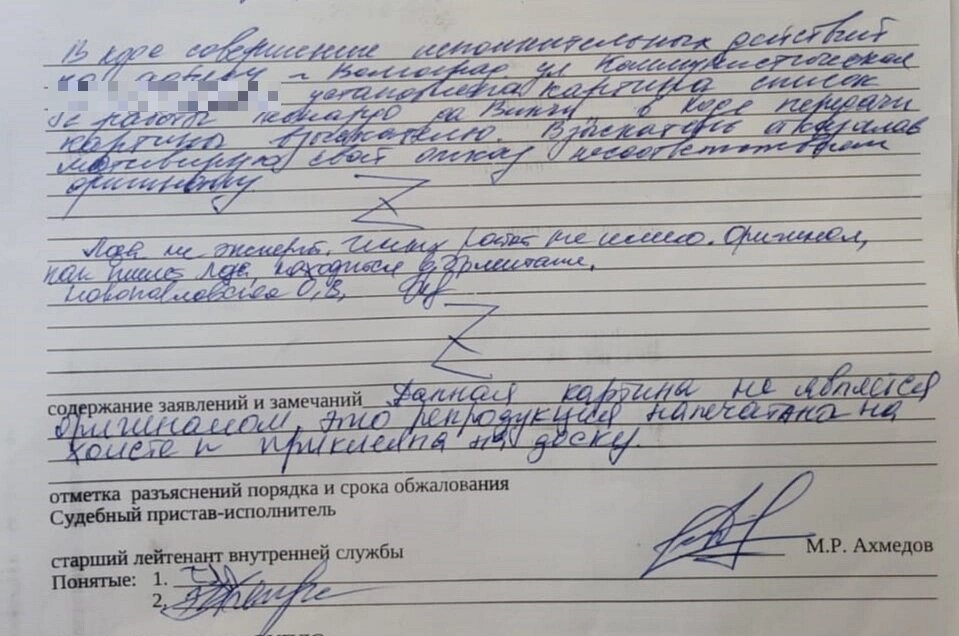 В ходе совершения исполнительных действий
по адресу г Волгоград ул Коммунистическая
установлена картина список
с работы Леонардо да Винчи в ходе передачи
картины взыскателю. Взыскатель отказалась
мотивируя свой отказ несоответствием
оригиналу.
Z
не эксперт. не имею. Оригинал,
как пишет находится в Эрмитаже.
Новопавловская О.В.
Z
содержание заявлений и замечаний Данная картина не является
оригиналом это репродукция напечатана на
холсте и приклеена на доску.
отметка разъяснений порядка и срока обжалования
Судебный пристав-исполнитель
старший лейтенант внутренней службы
М.Р. Ахмедов
Понятые: 1.
2.